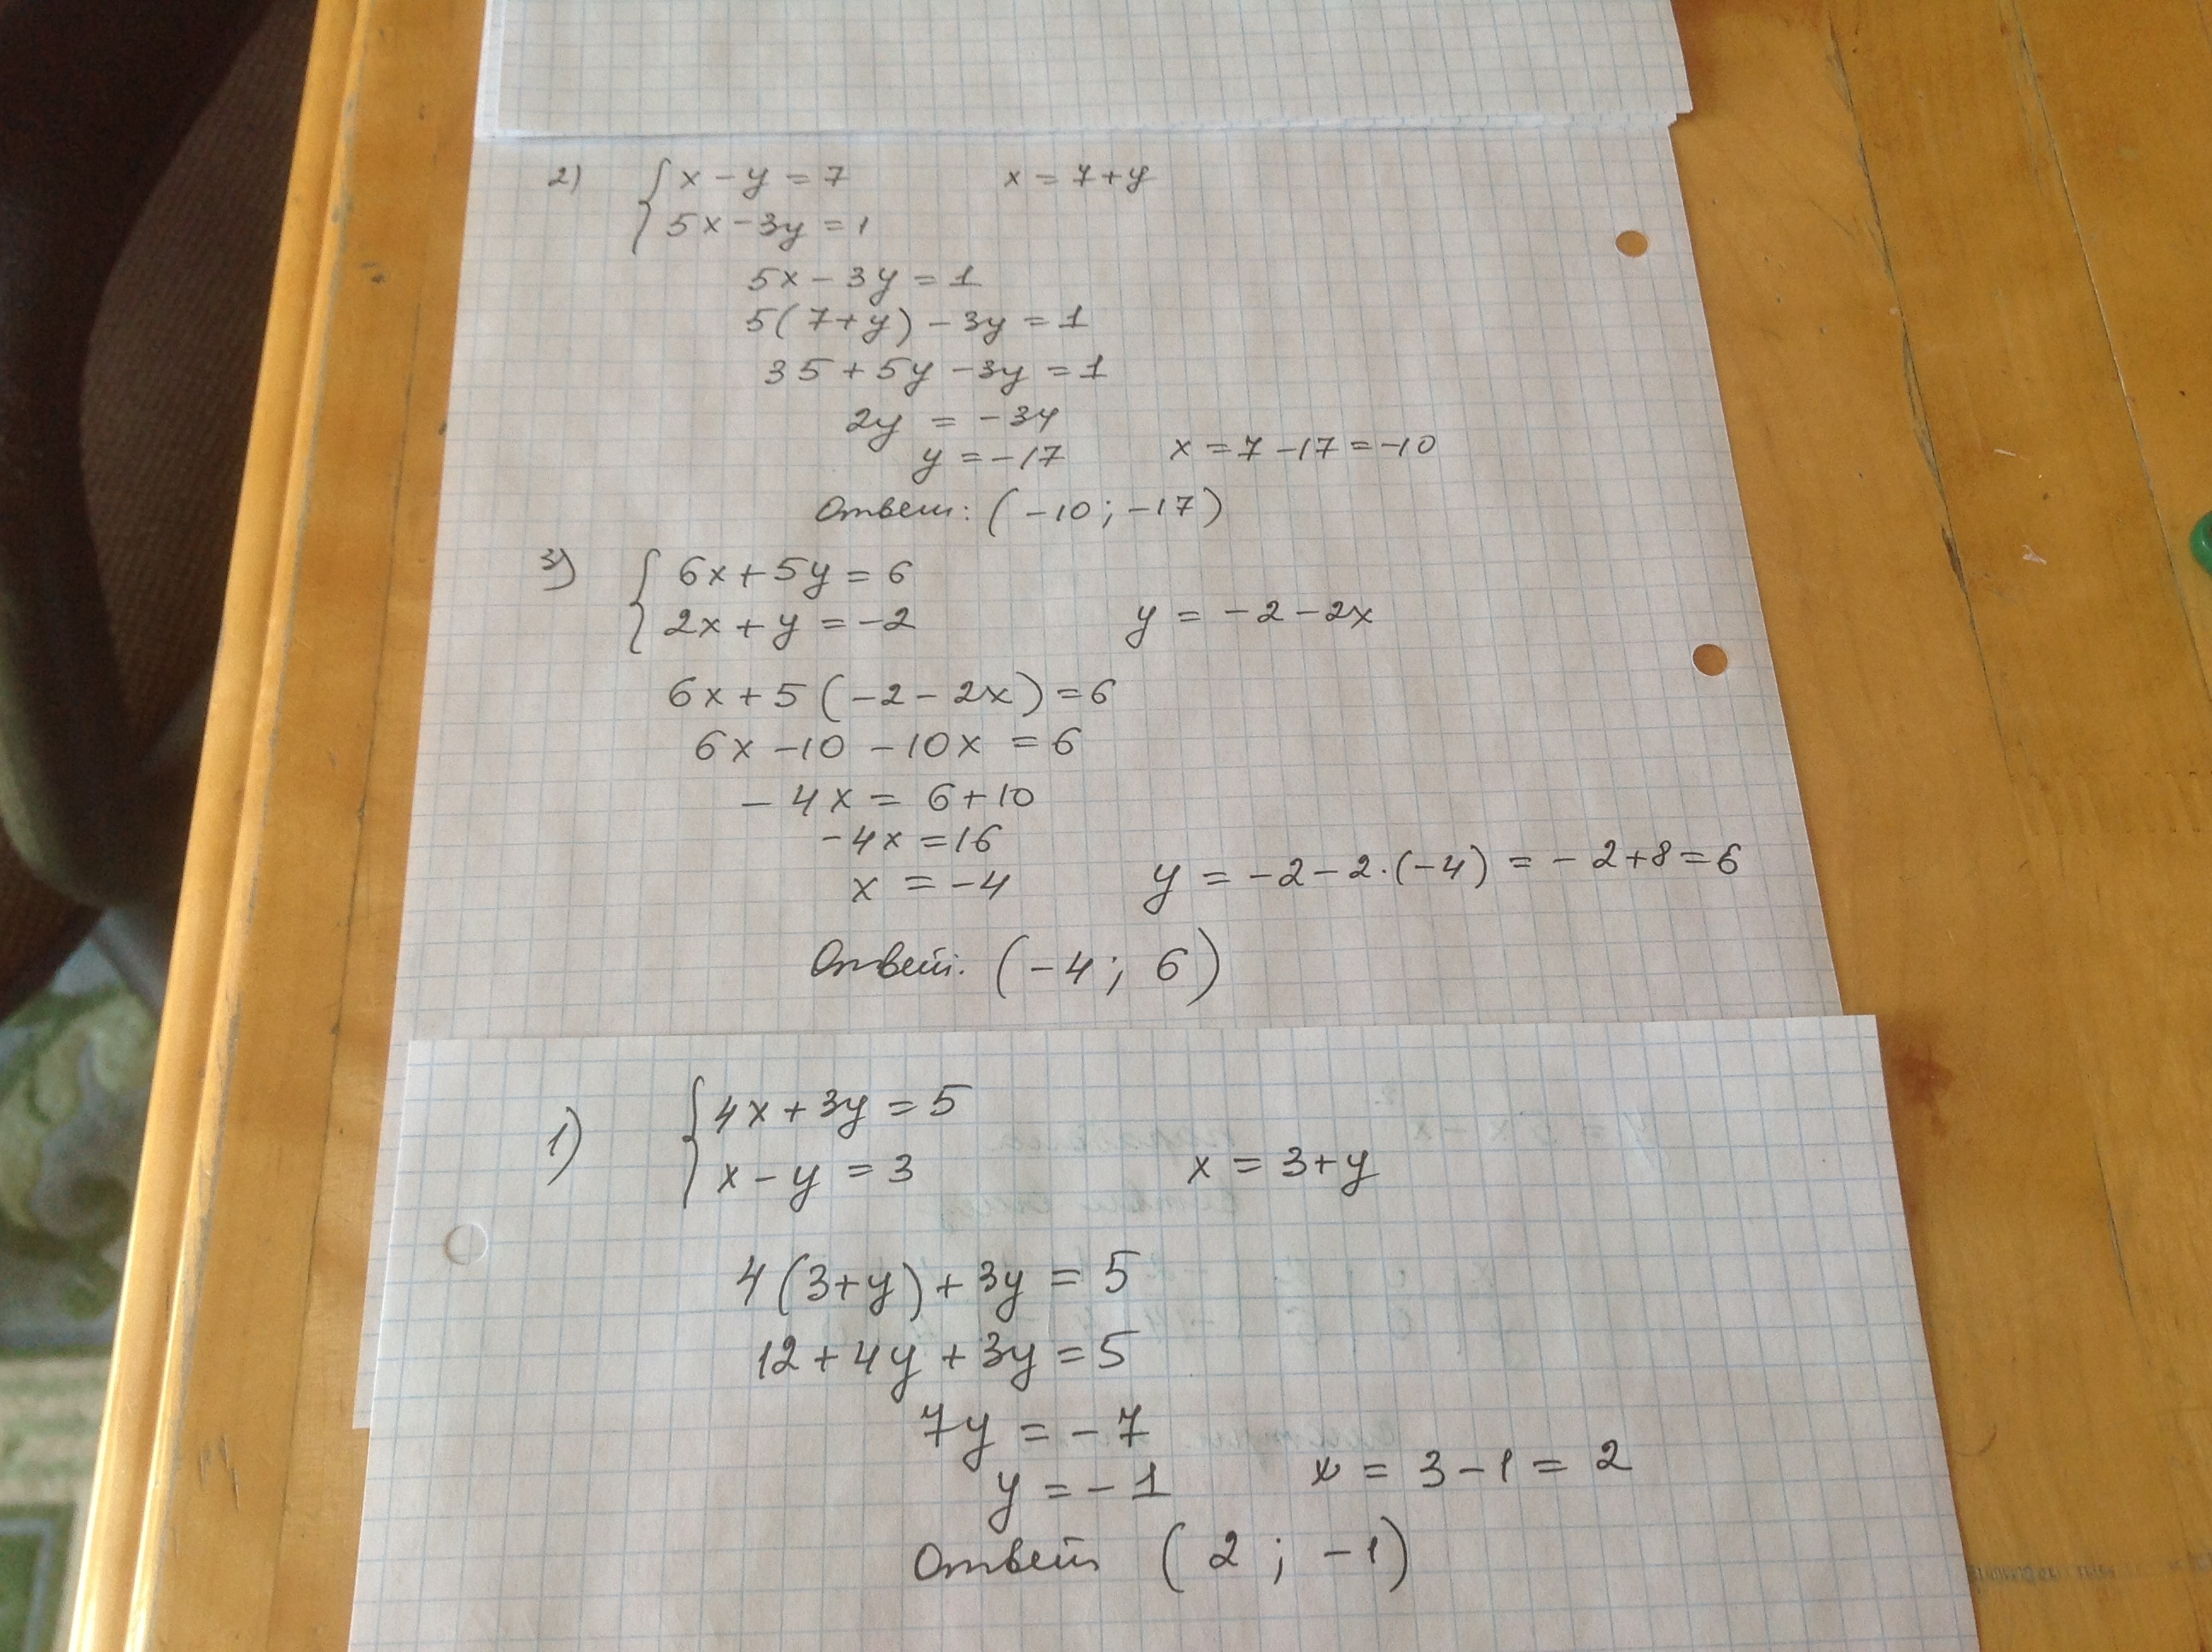 2) { x - y = 7 x = 7 + y
5x - 3y = 1
5x - 3y = 1
5(7+y) - 3y = 1
35 + 5y - 3y = 1
2y = -34
y = -17 x = 7 - 17 = -10
Ответ: (-10; -17)
3) { 6x + 5y = 6
2x + y = -2 y = -2 - 2x
6x + 5(-2 - 2x) = 6
6x - 10 - 10x = 6
- 4x = 6 + 10
- 4x = 16
x = -4 y = -2 - 2·(-4) = -2 + 8 = 6
Ответ: (-4; 6)
1) { 4x + 3y = 5
x - y = 3 x = 3 + y
4(3+y) + 3y = 5
12 + 4y + 3y = 5
7y = -7
y = -1 x = 3 - 1 = 2
Ответ (2; -1)